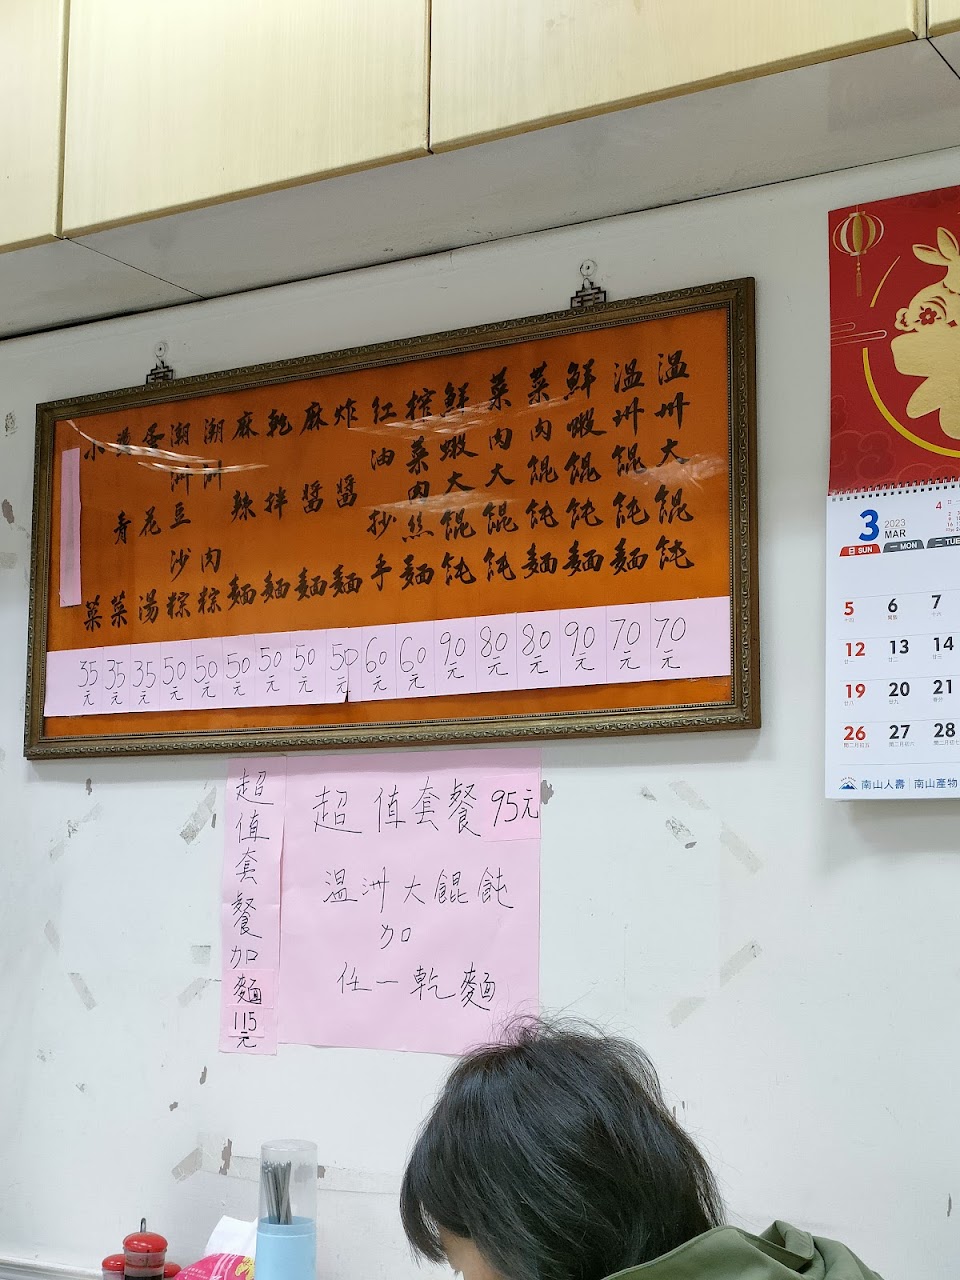 溫州大餛飩 70元
溫州餛飩麵 70元
鮮蝦餛飩麵 90元
菜肉餛飩麵 80元
菜肉大餛飩 80元
鮮蝦大餛飩 90元
榨菜肉絲麵 60元
紅油抄手 60元
炸醬麵 50元
麻醬麵 50元
乾拌麵 50元
麻辣麵 50元
潮洲肉粽 50元
潮洲豆沙粽 50元
蛋花湯 35元
燙青菜 35元
小菜 35元
超值套餐 95元
溫洲大餛飩
加
任一乾麵
超值套餐加麵 115元
3 2023 MAR 4
日 SUN 一 MON 二 TUE
5 6 7
12 13 14
19 20 21
26 27 28
南山人壽 南山產物